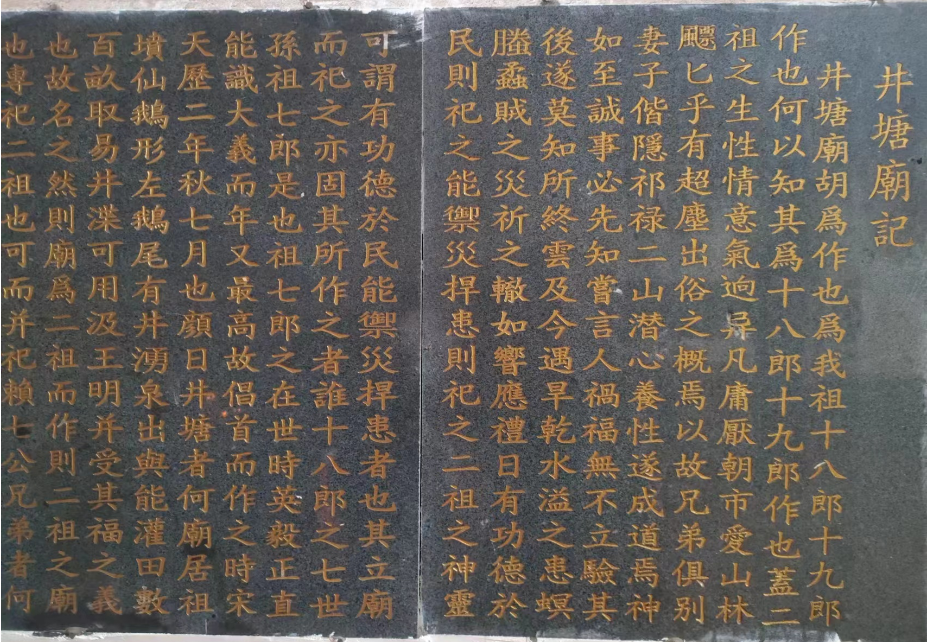 井塘廟記
井塘廟胡爲作也爲我祖十八郎十九郎
作也何以知其爲十八郎十九郎作也蓋二
祖之生性情意氣逈异凡庸厭朝市愛山林
飃匕乎有超塵出俗之概焉以故兄弟俱別
妻子偕隱祁祿二山潜心養性遂成道焉神
如至誠事必先知嘗言人禍福無不立驗其
後遂莫知所終雲及今遇旱乾水溢之患螟
螣蟊賊之災祈之轍如響應禮日有功德於
民則祀之能禦災捍患則祀之二祖之神靈
可謂有功德於民能禦災捍患者也其立廟
而祀之亦固其所作之者誰十八郎之七世
孫祖七郎是也祖七郎之在世時英毅正直
能識大義而年又最高故倡首而作之時宋
天歷二年秋七月也顔日井塘者何廟居祖
墳仙鵝形左鵝尾有井湧泉出與能灌田數
百畝取易井渫可用汲王明并受其福之義
也故名之然則廟爲二祖而作則二祖之廟
也專祀二祖也可而并祀賴七公兄弟者何